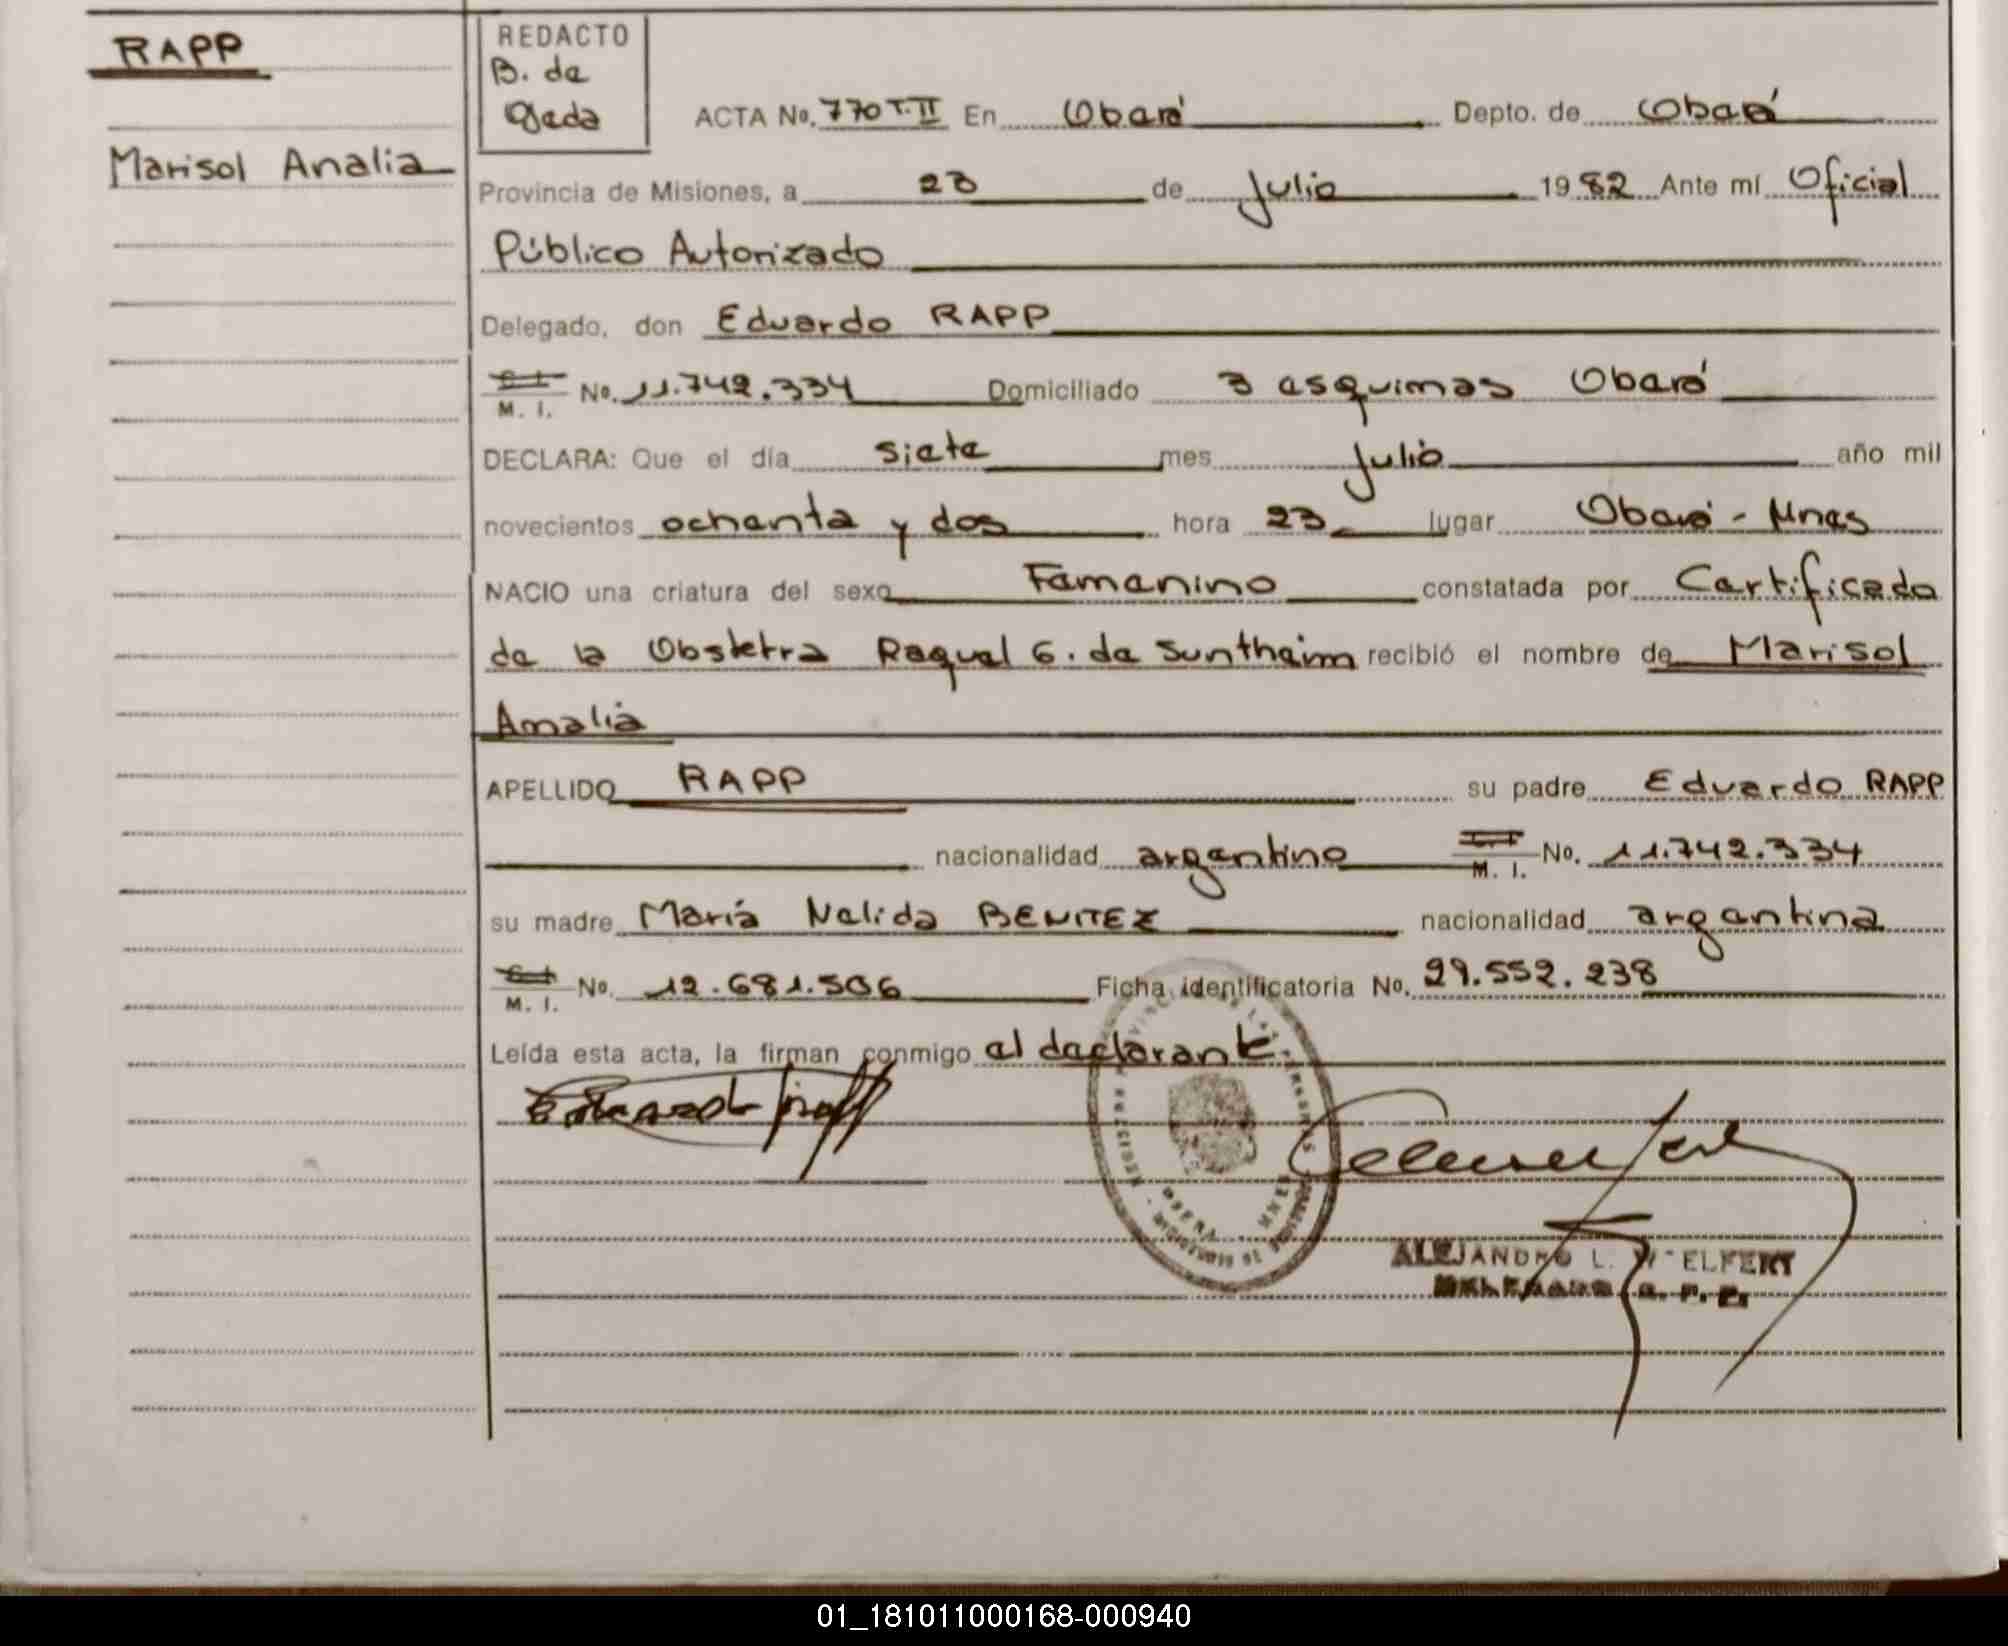 RAPP
Marisol Analia
REDACTO
B. de
Ojeda
ACTA No. 770 T.II En Oberá Depto. de Oberá
Provincia de Misiones, a 23 de Julio 1982 Ante mí Oficial
Público Autorizado
Delegado, don Eduardo RAPP
M. I. No. 11.742.334 Domiciliado 3 esquinas Oberá
DECLARA: Que el día siete mes Julio año mil
novecientos ochenta y dos hora 23 lugar Oberá - Mnes
NACIO una criatura del sexo Femenino constatada por Certificado
de la Obstetra Raquel G. de Suntheim recibió el nombre de Marisol
Analia
APELLIDO RAPP su padre Eduardo RAPP
nacionalidad argentino M. I. No. 11.742.334
su madre María Nelida BENITEZ nacionalidad argentina
M. I. No. 12.681.506 Ficha identificatoria No. 29.552.238
Leída esta acta, la firman conmigo el declarante.
ALEJANDRO L. WELFERT
01_181011000168-000940